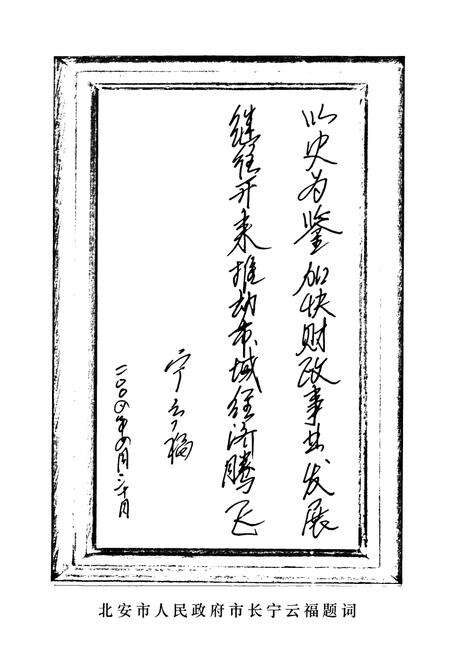 以史为鉴加快财政事业发展
继往开来推动市域经济腾飞
宁云福
二〇〇八年四月二十日
北安市人民政府市长宁云福题词